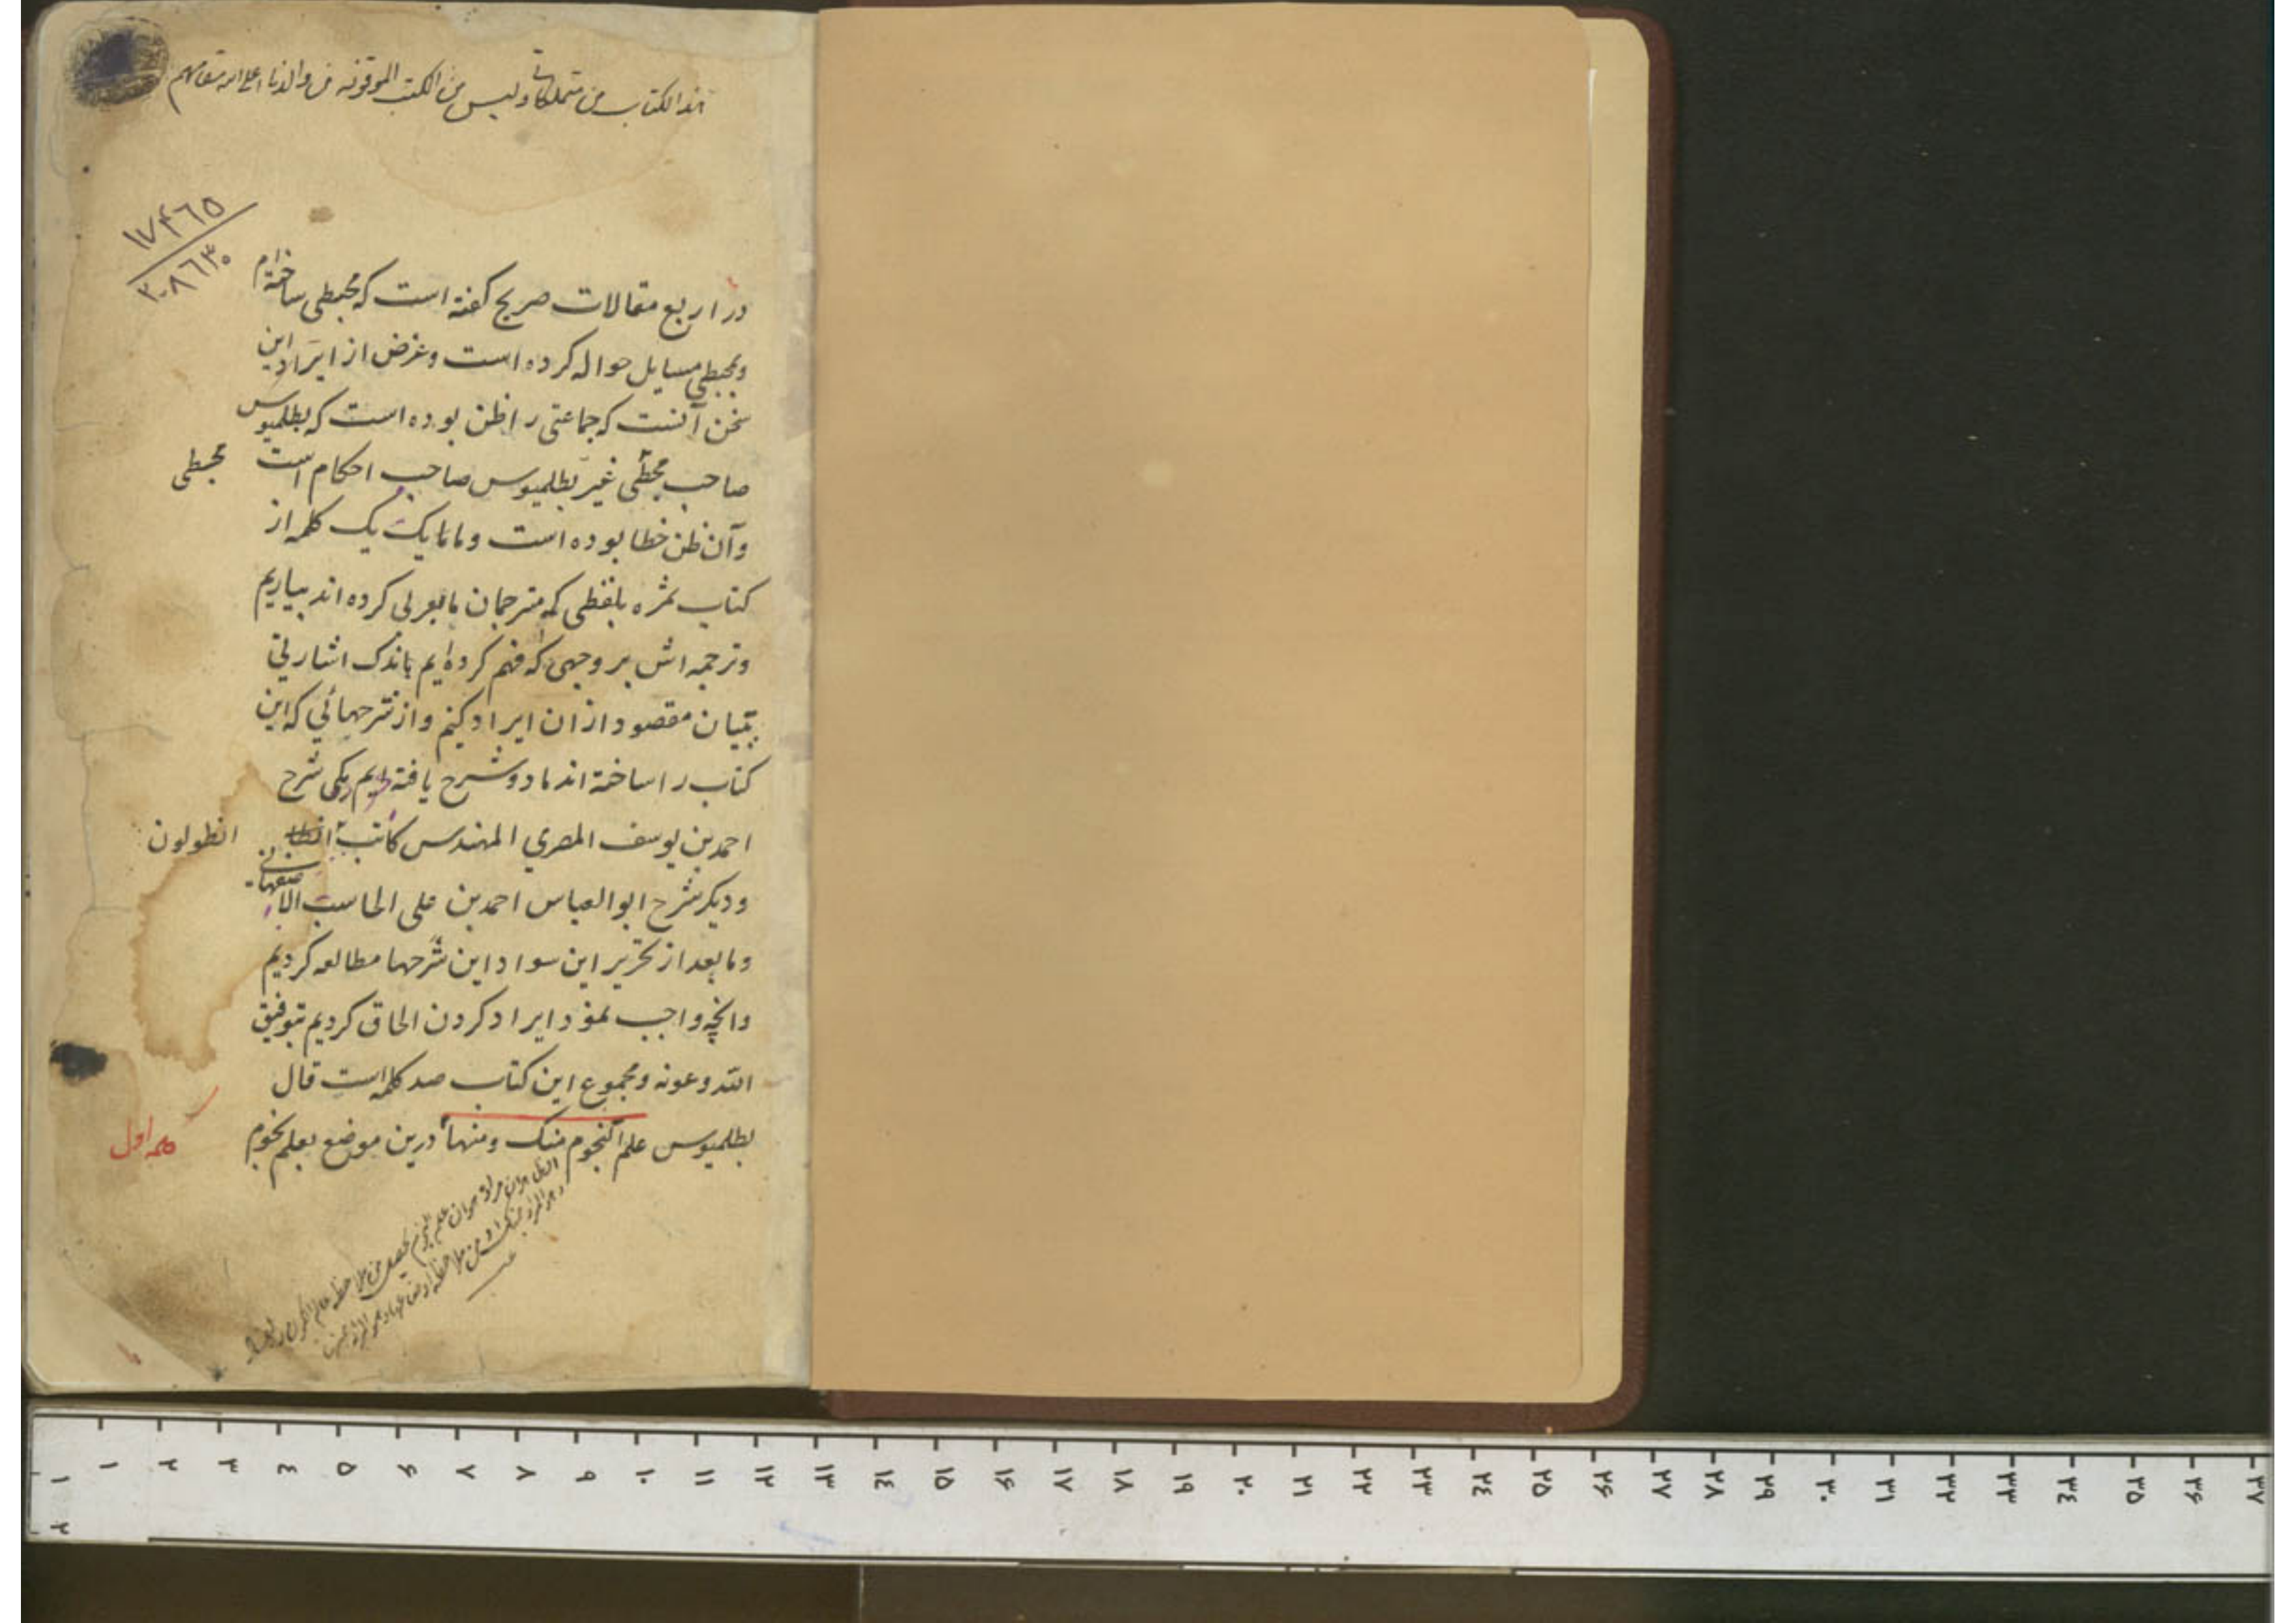 هذا الكتاب من متملكاتي وليس من الكتب الموقوفه من والدنا اعلى الله مقامهم
١٧۴٦٥
٢٠٨٦٣٠
در اربع مقالات صریح کفته است که مجسطی ساخته‌ام
وبمجسطی مسایل حواله کرده است وغرض از ایراد این
سخن آنست که جماعتی را ظن بوده است که بطلمیوس
صاحب مجسطی غیر بطلمیوس صاحب احکام است
مجسطی
وآن ظن خطا بوده است وما تا یک یک کلمه از
کتاب ثمره بلفظی که مترجمان با بعربی کرده اند بیاریم
وترجمه اش بر وجهی که فهم کرده ایم باندک اشارتی
ببیان مقصود ازان ایراد کنیم واز شرحهائی که این
کتاب را ساخته اند ما دو شرح یافته ایم یکی شرح
احمد بن یوسف المصري المهندس کاتب
انطولون
ودیکر شرح ابوالعباس احمد بن علی الحاسب الاصفهانی
وما بعد از تحریر این سواد این شرحها مطالعه کردیم
وانچه واجب نمود ایراد کردن الحاق کردیم بتوفیق
الله وعونه ومجموع این کتاب صد کلمه است قال
بطلمیوس علم النجوم منک ومنها درین موضع بعلم نجوم
کلمه اول
١
١
٢
٣
٤
٥
۶
٧
٨
٩
١٠
١١
١٢
١٣
١٤
١٥
١۶
١٧
١٨
١٩
٢٠
٢١
٢٢
٢٣
٢٤
٢٥
٢۶
٢٧
٢٨
٢٩
٣٠
٣١
٣٢
٣٣
٣٤
٣٥
٣۶
٣٧
٢